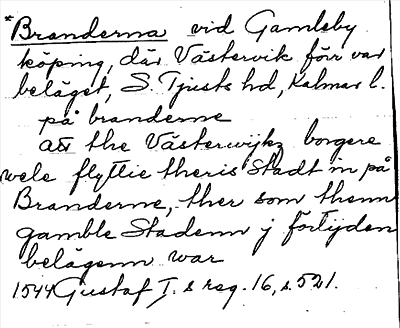 *Branderna vid Gamleby
köping, där Västervik förr var
beläget, S. Tjusts hd, Kalmar l.
på branderne
att the Västerwijkz borgere
wele flyttie theris Stadt in på
Branderne, ther som thenn
gamble Stadenn j förtijden
belägenn war
1544 Gustaf I. s reg. 16, s. 521.